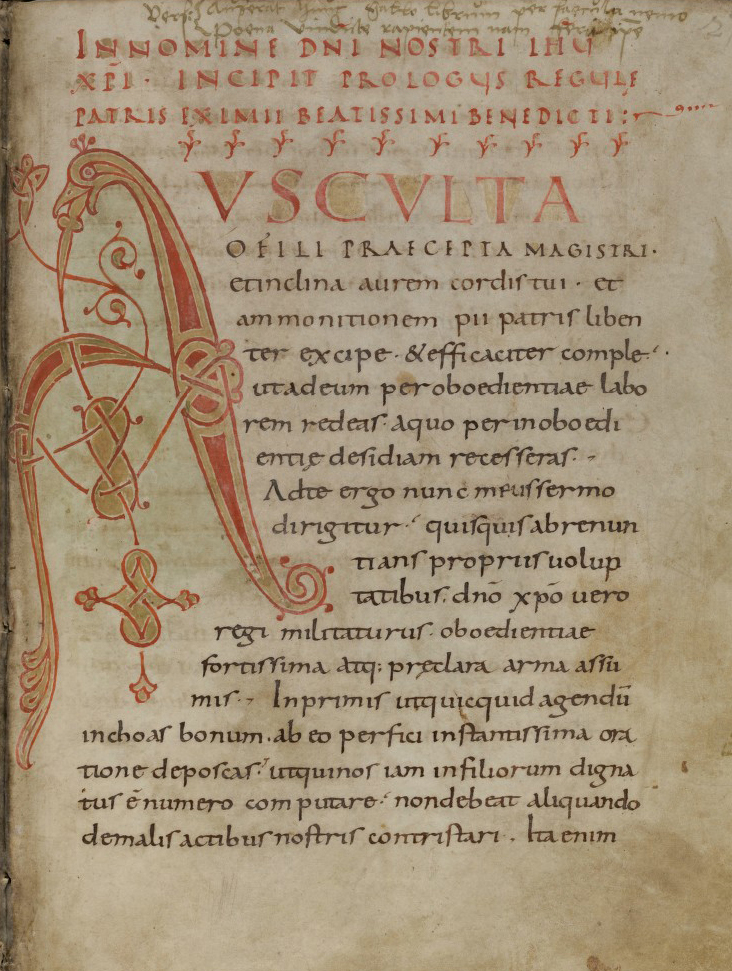 Auferat hunc librum per saecula nemo
rapientem nam
INNOMINE DNI NOSTRI IHU
XP̄I · INCIPIT PROLOGUS REGULE
PATRIS EXIMII BEATISSIMI BENEDICTI:
AUSCULTA
O FILI PRAECEPTA MAGISTRI·
etinclina aurem cordistui · et
ammonitionem pii patris liben
ter excipe · &efficaciter comple·
utadeum peroboedientiae labo
rem redeas· aquo perinoboedi
entię desidiam recesseras·
Adte ergo nunc meussermo
dirigitur· quisquisabrenun
tians propriisuolup
tatibus· dnō xpō uero
regi militaturus· oboedientiae
fortissima atq: pręclara arma assū
mis· Inprimis utquicquid agendū
inchoas bonum· ab eo perfici instantissima ora
tione deposcas· utquinos iam infiliorum digna
tus ē numero computare· nondebeat aliquando
demalis actibus nostris contristari· Ita enim